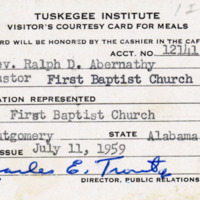 TUSKEGEE INSTITUTE
VISITOR'S COURTESY CARD FOR MEALS
ARD WILL BE HONORED BY THE CASHIER IN THE CAFE
ACCT. NO. 12141
ev. Ralph D. Abernathy
astor First Baptist Church
ATION REPRESENTED
First Baptist Church
ontgomery STATE Alabama
ISSUE July 11, 1959
arles E. Trout
DIRECTOR, PUBLIC RELATIONS